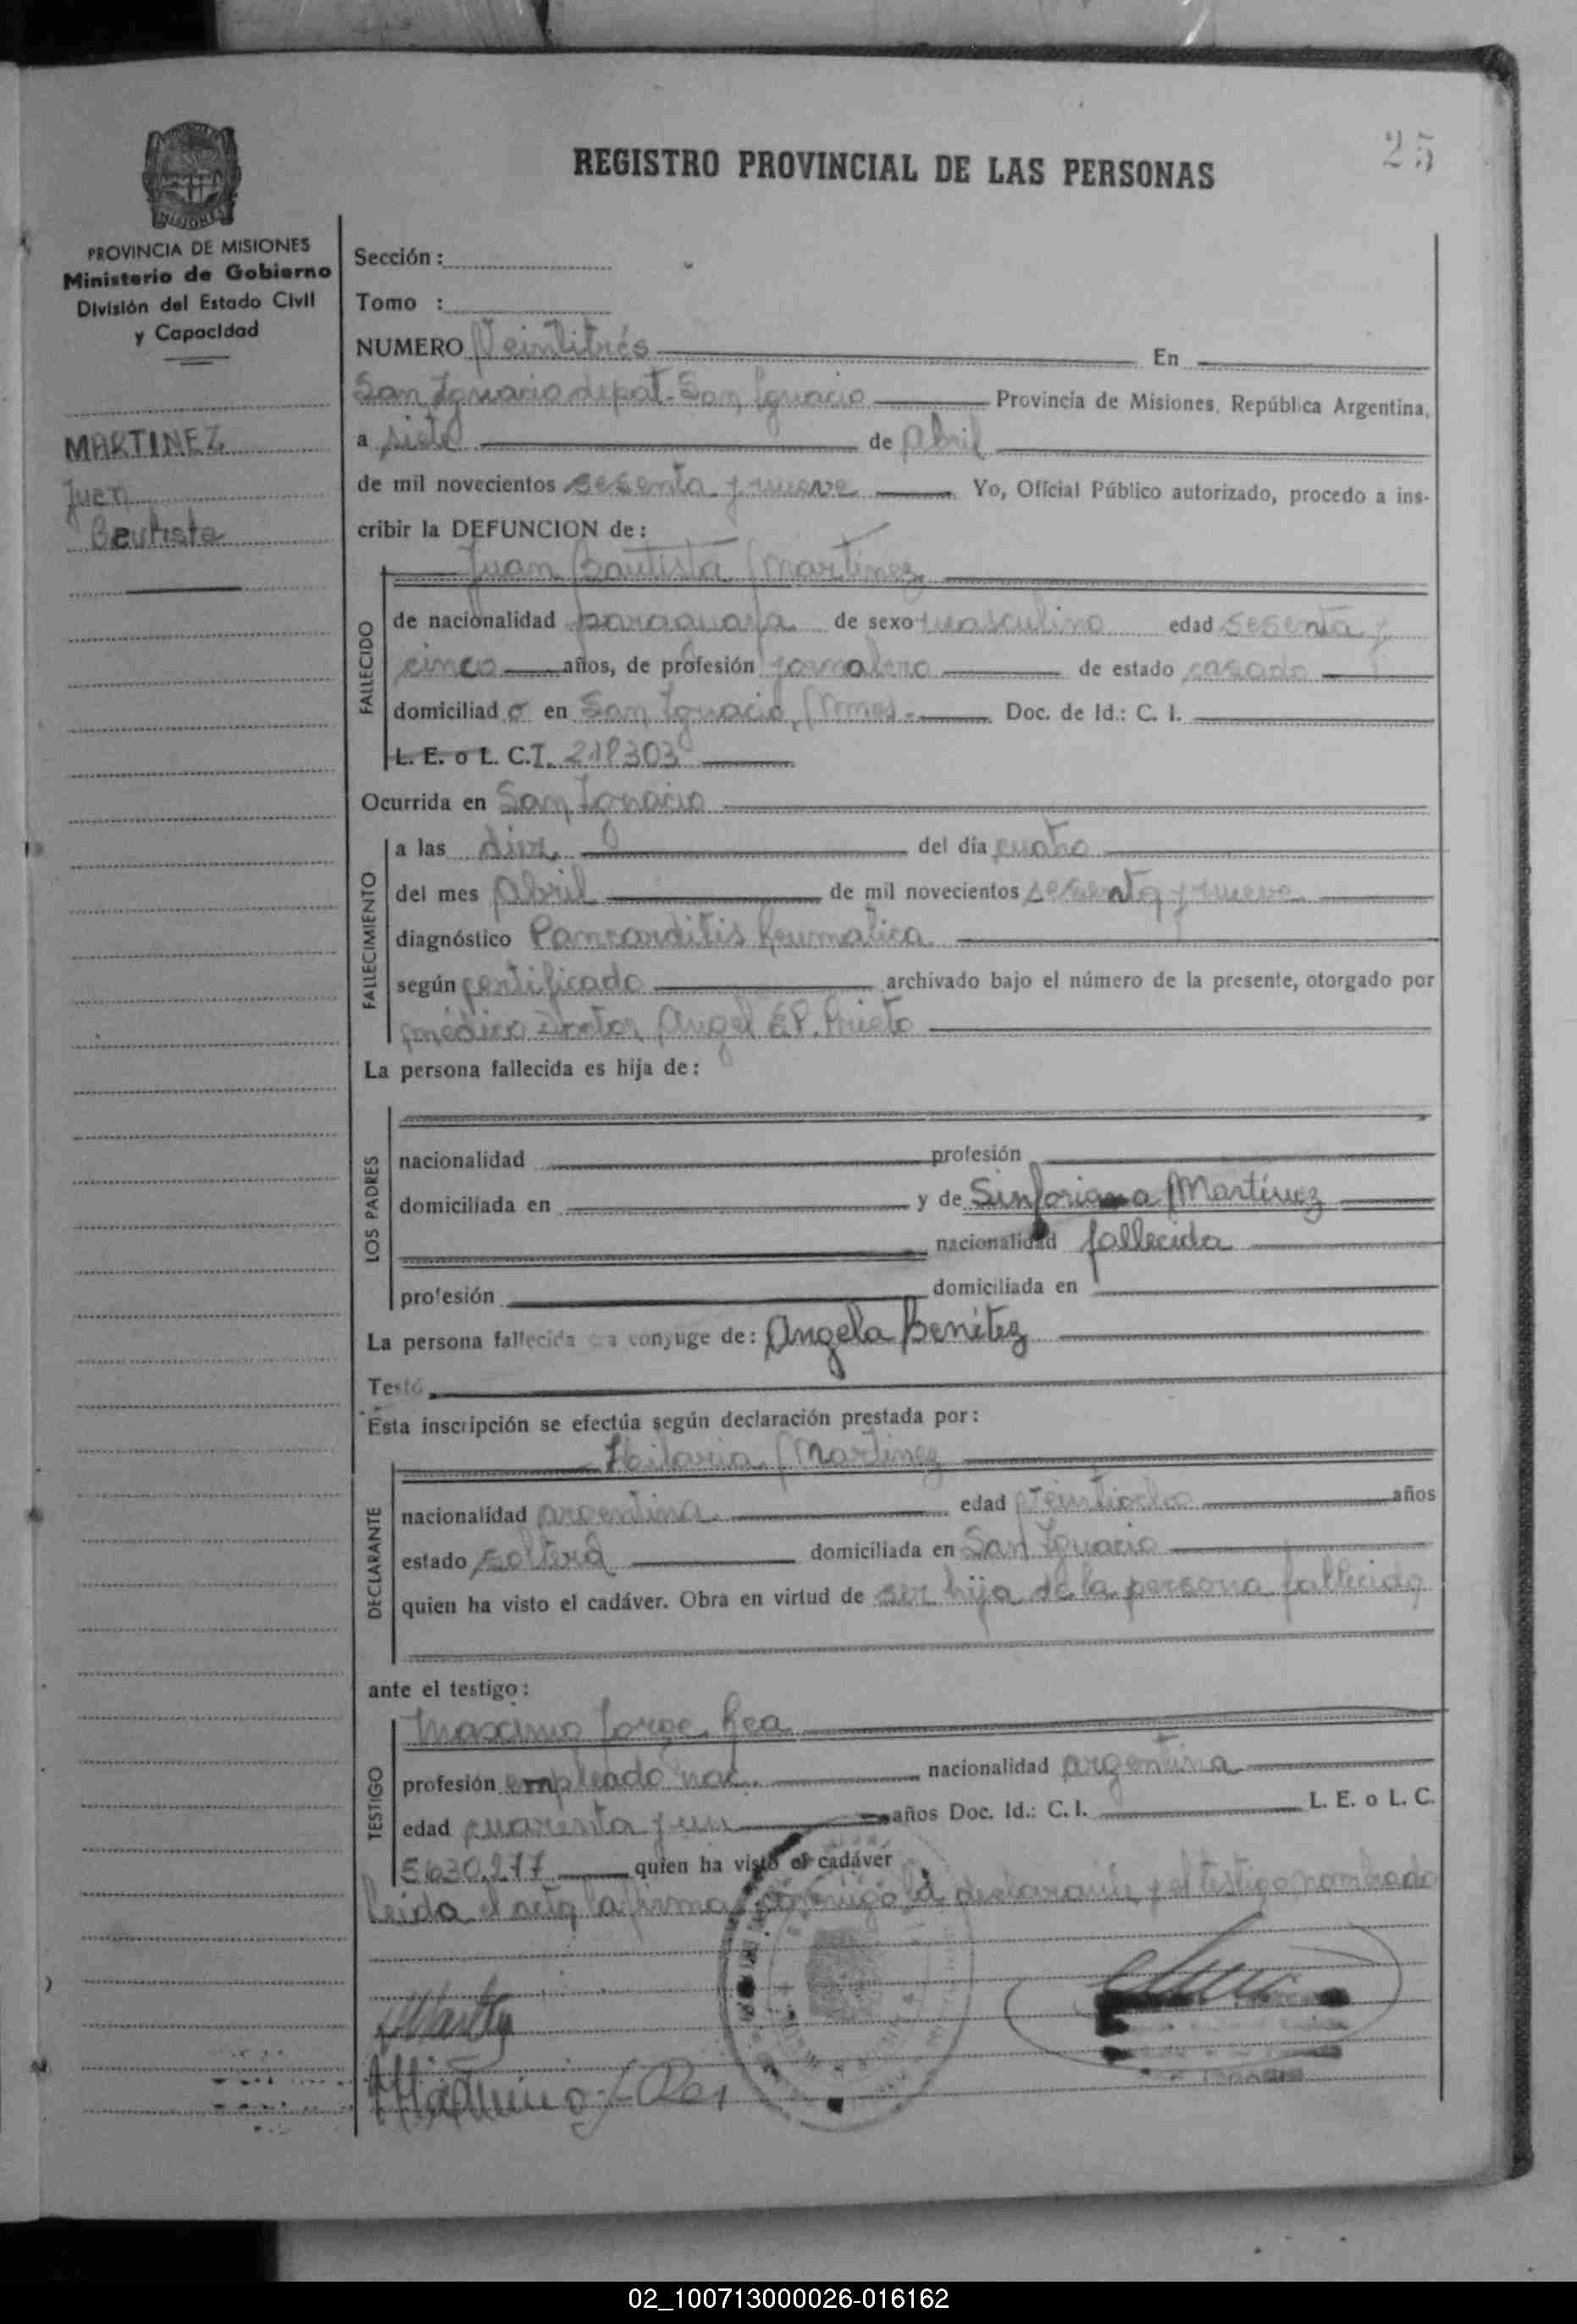 25
REGISTRO PROVINCIAL DE LAS PERSONAS
PROVINCIA DE MISIONES
Ministerio de Gobierno
División del Estado Civil
y Capacidad
MARTINEZ
Juan
Bautista
Sección:
Tomo :
NUMERO Veintitrés En
San Ignacio depat. San Ignacio Provincia de Misiones, República Argentina,
a siete de Abril
de mil novecientos sesenta y nueve Yo, Oficial Público autorizado, procedo a ins-
cribir la DEFUNCION de:
Juan Bautista Martinez
FALLECIDO
de nacionalidad paraguaya de sexo masculino edad sesenta y
cinco años, de profesión jornalero de estado casado
domiciliad o en San Ignacio, Mnes. Doc. de Id.: C. I.
L. E. o L. C.I. 218303
Ocurrida en San Ignacio
FALLECIMIENTO
a las diez del día cuatro
del mes Abril de mil novecientos sesenta y nueve
diagnóstico Pancarditis Reumatica
según certificado archivado bajo el número de la presente, otorgado por
médico doctor Angel E.P. Prieto
La persona fallecida es hija de:
LOS PADRES
nacionalidad profesión
domiciliada en y de Sinforiana Martínez
nacionalidad fallecida
profesión domiciliada en
La persona fallecida era conyuge de: Angela Benítez
Testó
Esta inscripción se efectúa según declaración prestada por:
Hilaria Martinez
DECLARANTE
nacionalidad argentina edad Veintiocho años
estado soltera domiciliada en San Ignacio
quien ha visto el cadáver. Obra en virtud de ser hija de la persona fallecida
ante el testigo:
Maximo Jorge Rea
TESTIGO
profesión empleado nac. nacionalidad argentina
edad cuarenta y un años Doc. Id.: C. I. L. E. o L. C.
5630.277 quien ha visto el cadáver
Leida el acta la firma conmigo la declarante y el testigo nombrado
02_100713000026-016162